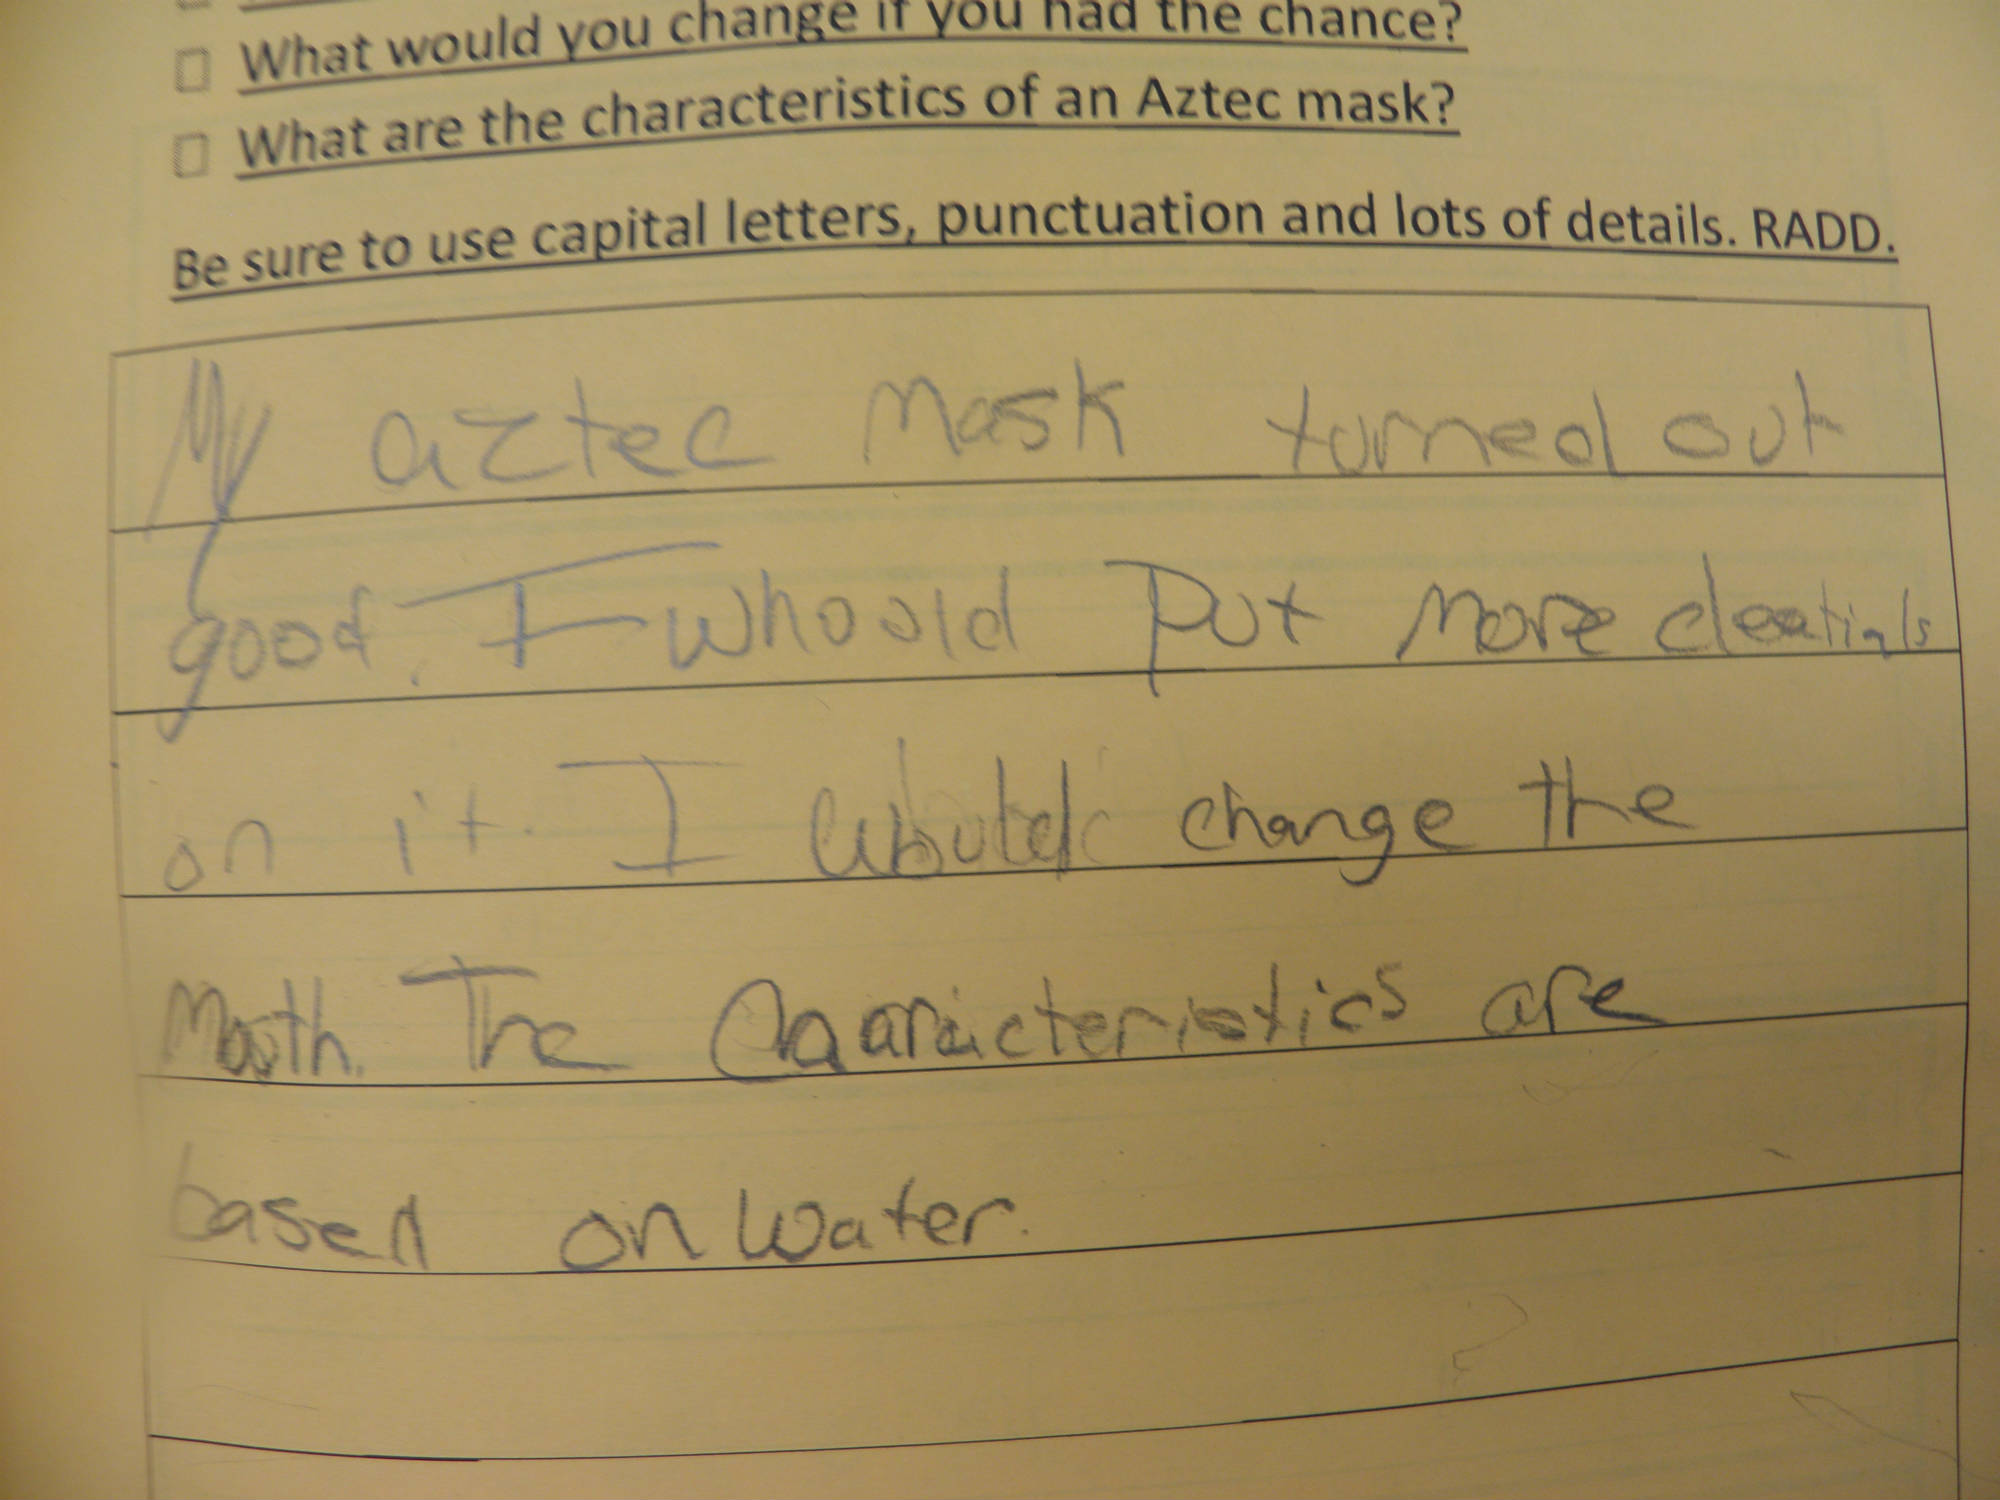 What would you change if you had the chance?
What are the characteristics of an Aztec mask?
Be sure to use capital letters, punctuation and lots of details. RADD.
My aztec mask turned out
good. I whoold put more deatials
on it. I would change the
Mouth. The Caaracteristics are
based on water.